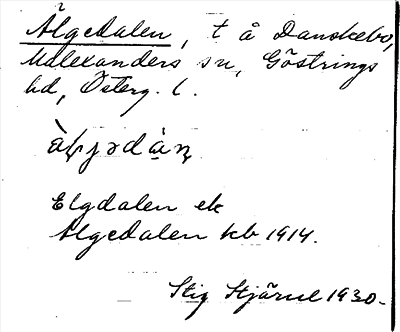 Älgedalen, t å Danskebo,
Malexanders sn, Göstrings
hd, Österg. l.
Elgdalen ek
Älgedalen kb 1914.
Stig Stjärne 1930.